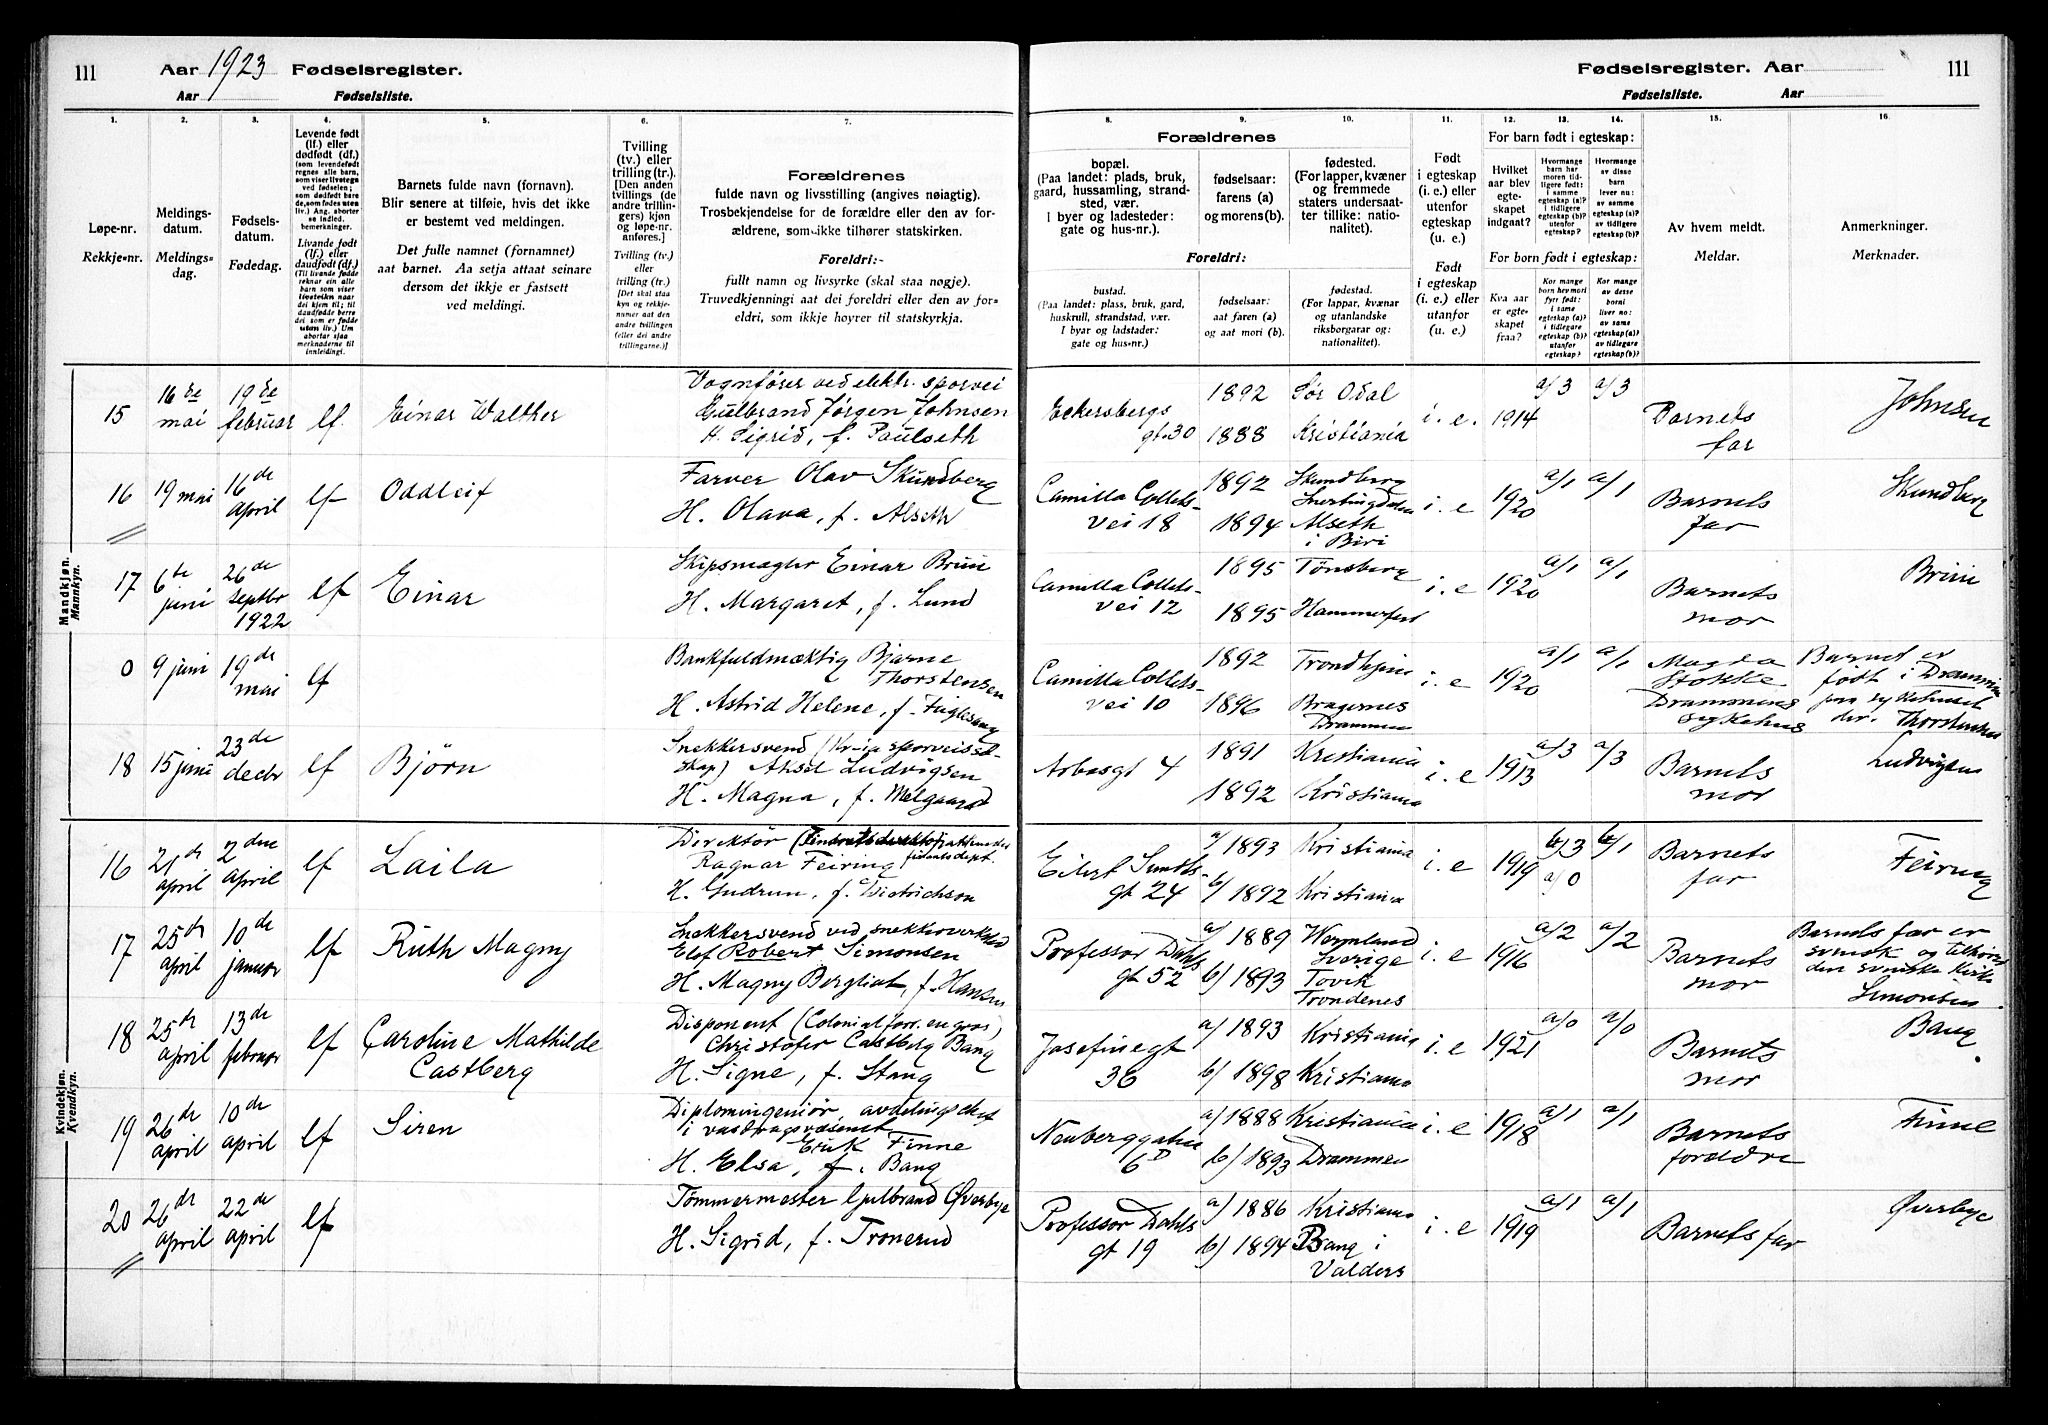 111
Aar 1923 Fødselsregister.
Aar Fødselsliste.
1.
2.
3.
4.
5.
6.
7.
Løpe-nr.
Rekkje-nr.
Meldings-
datum.
Meldings-
dag.
Fødsels-
datum.
Fødedag.
Levende født
(lf.) eller
dødfødt (df.)
(som levendefødt
regnes alle barn,
som viser livstegn
ved fødselen;
som dødfødt bare
de, som fødes uten
liv.) Ang. aborter
se indled.
bemerkninger.
Livande født
(lf.) eller
daudfødt (df.)
(Til livande fødde
reknar ein alle
barn som viser
livsteikn naar
dei kjem til; til
daudfødde berre
dei som er fødde
utan liv.) Um
abortar sjaa
merknaderne til
innleidingi.
Barnets fulde navn (fornavn).
Blir senere at tilføie, hvis det ikke
er bestemt ved meldingen.
Det fulle namnet (fornamnet)
aat barnet. Aa setja attaat seinare
dersom det ikkje er fastsett
ved meldingi.
Tvilling
(tv.) eller
trilling (tr.).
[Den anden
tvillings (de
andre trillin-
gers) kjøn
og løpe-nr.
anføres.]
Tvilling (tv.)
eller
trilling (tr.)
[Det skal staa
kyn og rekkje-
numer aat den
andre tvillingen
(eller dei andre
trillingarne.)]
Forældrenes
fulde navn og livsstilling (angives nøiagtig).
Trosbekjendelse for de forældre eller den av for-
ældrene, som ikke tilhører statskirken.
Foreldri:-
fullt namn og livsyrke (skal staa nøgje).
Truvedkjenningi aat dei foreldri eller den av for-
eldri, som ikkje høyrer til statskyrkja.
Mandkjøn.
Mannkyn.
15
16de
mai
19de
februar
lf.
Einar Walther
Vognfører ved elektr. sporvei
Gulbrand Jørgen Johnsen
H. Sigrid, f. Paulseth
16
19 mai
16de
april
lf
Oddleif
Farver Olav Skundberg
H. Olava, f. Alseth
17
6te
juni
26de
septbr
1922
lf
Einar
Skipsmægler Einar Bruu
H. Margaret, f. Lund
0
9 juni
19de
mai
lf
Bankfuldmæktig Bjarne
Thorstensen
H. Astrid Helene, f. Fuglesang
18
15 juni
23de
decbr
lf
Bjørn
Snekkersvend (Kr.ia sporveissel-
skap) Aksel Ludvigsen
H. Magna, f. Melgaard
Kvindekjøn.
Kvendkyn.
16
21de
april
2den
april
lf
Laila
Direktør
Ragnar Feiring
H. Gudrun, f. Dietrichson
17
25de
april
10de
januar
lf
Ruth Magny
Snekkersvend ved snekkerverksted
Elof Robert Simonsen
H. Magny Bergliot, f. Hansen
18
25de
april
13de
februar
lf
Caroline Mathilde
Castberg
Disponent (Colonialforr. en gros)
Christofer Castberg Bang
H. Signe, f. Stang
19
26de
april
10de
april
lf
Siren
Diplomingeniør, avdelingschef
i vasdragsvæsenet
Erik Finne
H. Elsa, f. Bang
20
26de
april
22de
april
lf
Tømmermester Gulbrand Øverbye
H. Sigrid, f. Tronerud
Fødselsregister. Aar
111
Fødselsliste. Aar
8.
9.
10.
11.
12.
13.
14.
15.
16.
Forældrenes
bopæl.
(Paa landet: plads, bruk,
gaard, hussamling, strand-
sted, vær.
I byer og ladesteder:
gate og hus-nr.).
fødselsaar:
farens (a)
og morens (b).
fødested.
(For lapper, kvæner
og fremmede
staters undersaat-
ter tillike: natio-
nalitet).
Foreldri:
bustad.
(Paa landet: plass, bruk, gard,
huskrull, strandstad, vær.
I byar og ladstader:
gate og hus-nr.)
fødselsaar:
aat faren (a)
og aat mori (b).
fødestad.
(For lappar, kvænar
og utanlandske
riksborgarar og:
nationalitet).
Født
i egteskap
(i. e.) eller
utenfor
egteskap
(u. e.)
Født
i egteskap
(i. e.) eller
utanfor
(u. e.).
For barn født i egteskap:
Hvilket
aar blev
egte-
skapet
indgaat?
Hvormange
barn har
moren tid-
ligere født:
i samme
egteskap (a)?
i tidligere
egteskap (b)?
utenfor
egteskap?
Hvormange
av disse
barn
lever nu:
av samme
egteskap (a)?
av tidligere
egteskap (b)?
For born født i egteskap:
Kva aar
er egte-
skapet
fraa?
Kor mange
born hev mori
fyrr født:
i same
egteskap (a)?
i tidlegare
egteskap (b)?
utanfor
egteskap?
Kor mange
av desse
borni
liver no:
av same
egteskap (a)?
av tidlegare
egteskap (b)?
Av hvem meldt.
Meldar.
Anmerkninger.
Merknader.
Eckersbergs
gt. 30
1892
1888
Sør Odal
Kristiania
i. e.
1914
a/3
a/3
Barnets
far
Johnsen
Camilla Collets-
vei 18
1892
1894
Skundberg
Snertingdalen
Alseth
i Biri
i. e
1920
a/1
a/1
Barnets
far
Skundberg
Camilla Collets-
vei 12
1895
1895
Tønsberg
Hammerfest
i. e
1920
a/1
a/1
Barnets
mor
Bruu
Camilla Collets-
vei 10
1892
1896
Trondhjem
Bragernes
Drammen
i. e
1920
a/1
a/1
Magda
Stokke
Drammens
sykehus
Barnet er
født i Drammen
paa sykehuset
der. Thorstensen
Arbosgt 4
1891
1892
Kristiania
Kristiania
i. e
1913
a/3
a/3
Barnets
mor
Ludvigsen
Eilert Sundts-
gt 24
a/ 1893
b/ 1892
Kristiania
Kristiania
i. e
1919
b/3
a/0
b/1
Barnets
far
Feiring
Professor Dahls
gt 52
a/ 1889
b/ 1893
Wermland
Sverige
Tovik
Trondenes
i. e
1916
a/2
a/2
Barnets
mor
Barnets far er
svensk og tilhører
den svenske kirke
Simonsen
Josefinegt
36
a/ 1893
b/ 1898
Kristiania
Kristiania
i. e
1921
a/0
a/0
Barnets
mor
Bang
Neuberggaten
6D
a/ 1888
b/ 1893
Kristiania
Drammen
i. e
1918
a/1
a/1
Barnets
forældre
Finne
Professor Dahls
gt 19
a/ 1886
b/ 1894
Kristiania
Bang i
Valders
i. e
1919
a/1
a/1
Barnets far
Øverbye